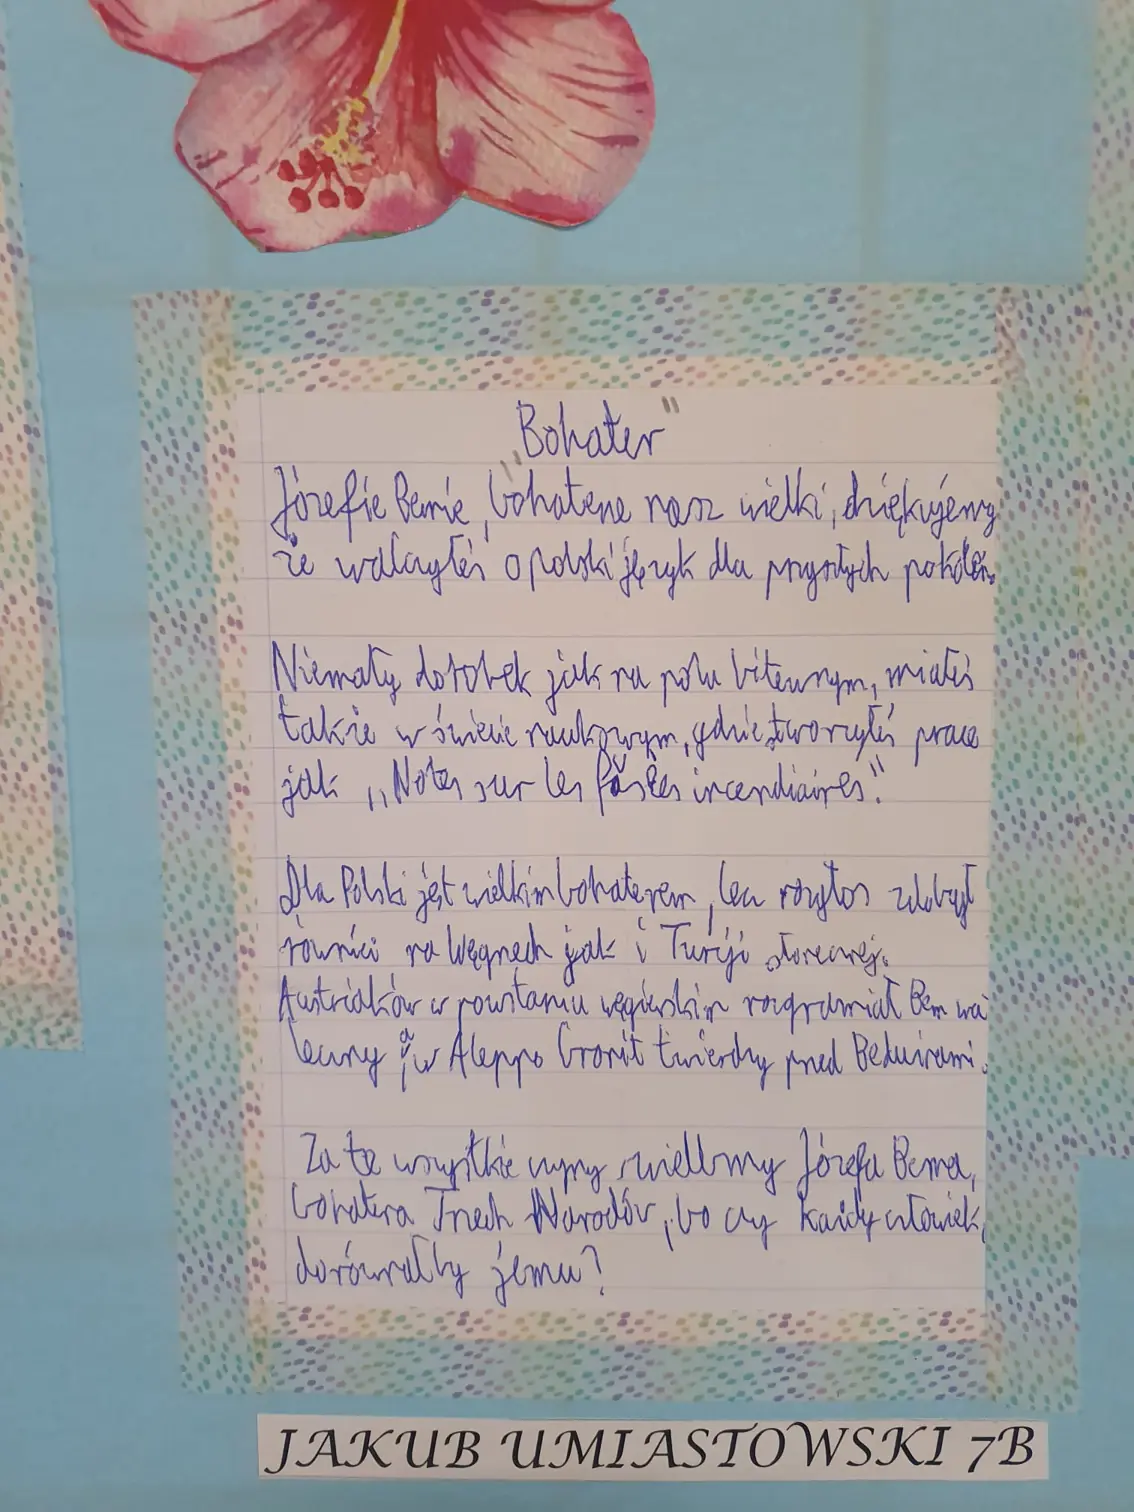 „Bohater"
Józefie Bemie, bohaterze nasz wielki, dziękujemy
że walczyłeś o polski język dla przyszłych pokoleń.
Niemały dorobek jak na polu bitewnym, miałeś
także w świecie naukowym, gdzie stworzyłeś prace
jak „Notes sur les fusées incendiaires".
Dla Polski jest wielkim bohaterem, lecz rozgłos zdobył
również na Węgrzech jak i Turcji słonecznej.
Austriaków w powstaniu węgierskim rozgramiał Bem wa
leczny a w Aleppo bronił twierdzy przed Beduinami.
Za te wszystkie czyny wielbmy Józefa Bema,
bohatera Trzech Narodów, bo czy każdy człowiek,
dorównałby jemu?
JAKUB UMIASTOWSKI 7B